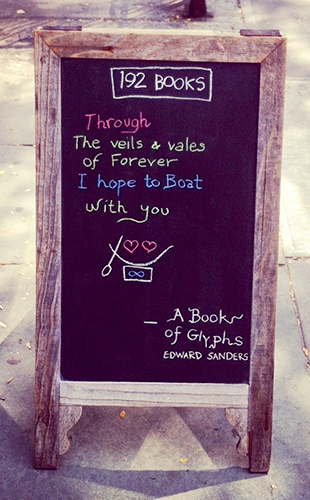 192 BOOKS
Through
The veils & vales
of Forever
I hope to Boat
with you
∞
— A Book
of Glyphs
EDWARD SANDERS